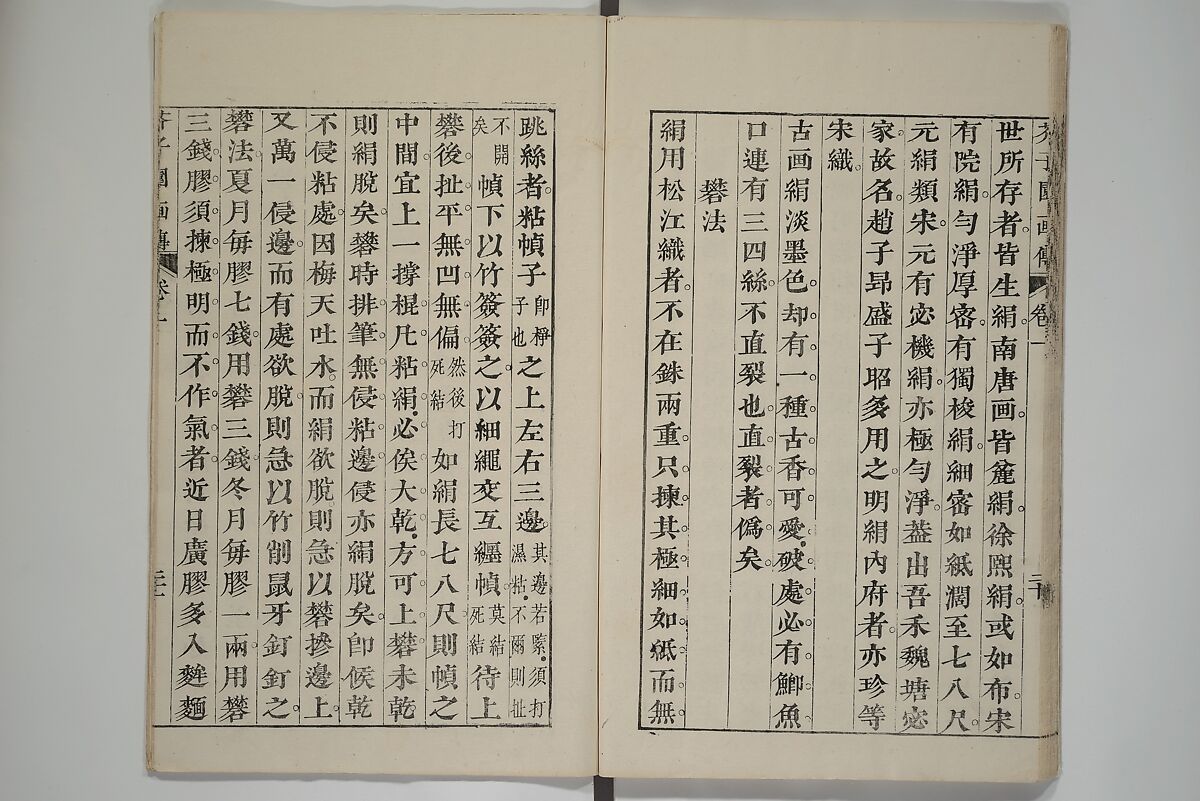 芥子園畫傳 卷一 二十
世所存者。皆生絹。南唐画皆麄絹。徐熈絹。或如布。宋
有院絹。勻淨厚密。有獨梭絹。細密如紙。濶至七八尺。
元絹類宋。元有宓機絹。亦極勻淨。葢出吾禾魏塘宓
家。故名。趙子昻盛子昭多用之。明絹內府者。亦珍等
宋織。
古画絹淡墨色。却有一種古香可愛。破處必有鯽魚
口。連有三四絲。不直裂也。直裂者。僞矣。
礬法
絹用松江織者。不在銖兩重。只揀其極細如紙。而無
跳絲者。粘幀子卽㡠子也之上左右三邊。其邊若緊。須打濕粘。不爾則扯
不開矣幀下以竹簽簽之。以細繩交互纒幀。莫結死結待上
礬後。扯平無凹無偏。然後打死結如絹長七八尺。則幀之
中間。宜上一撐棍。凡粘絹。必俟大乾。方可上礬。未乾
則絹脫矣。礬時排筆無侵粘邊。侵亦絹脫矣。卽候乾
不侵粘處。因梅天吐水。而絹欲脫。則急以礬摻邊上。
又萬一侵邊。而有處欲脫。則急以竹削鼠牙釘釘之。
礬法。夏月每膠七錢。用礬三錢。冬月每膠一兩。用礬
三錢。膠須揀極明而不作氣者。近日廣膠多入麰麵
芥子園画傳 卷一